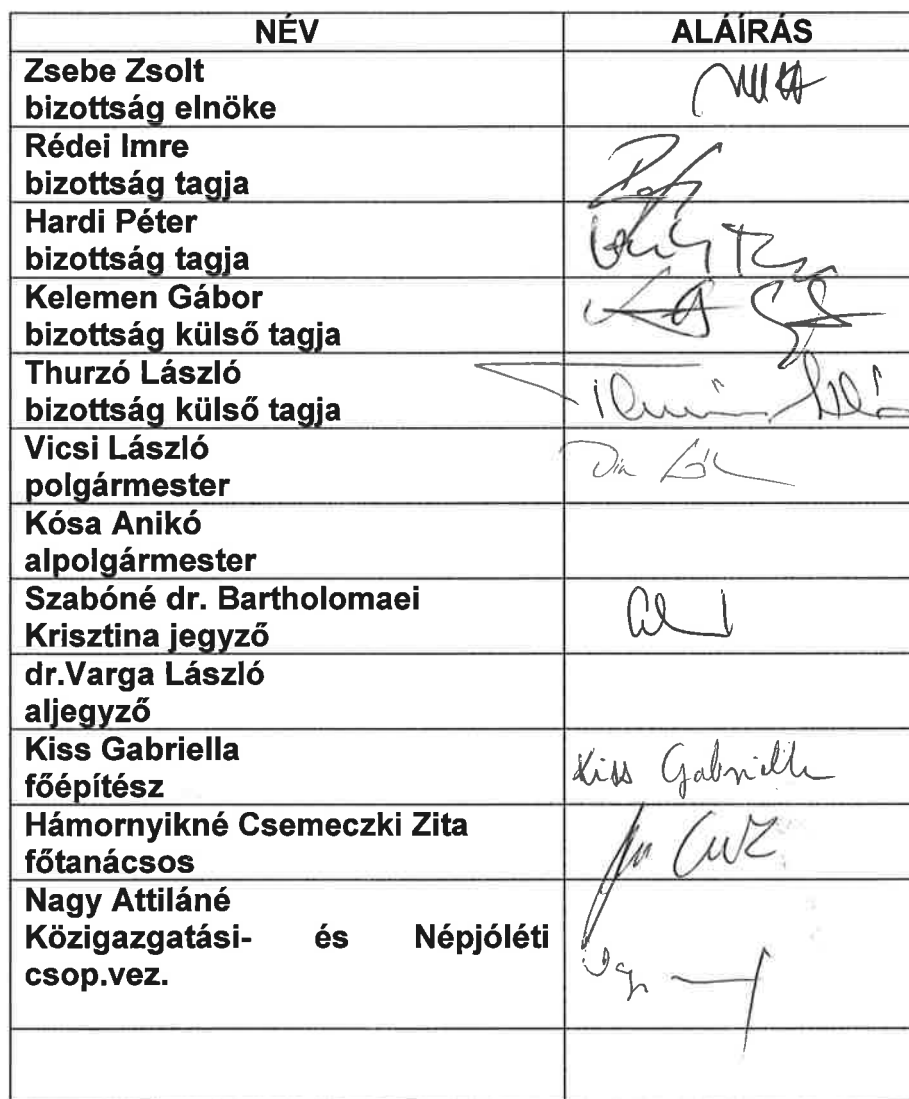 NÉV ALÁÍRÁS
Zsebe Zsolt
bizottság elnöke
Rédei Imre
bizottság tagja
Hardi Péter
bizottság tagja
Kelemen Gábor
bizottság külső tagja
Thurzó László
bizottság külső tagja
Vicsi László
polgármester
Kósa Anikó
alpolgármester
Szabóné dr. Bartholomaei
Krisztina jegyző
dr.Varga László
aljegyző
Kiss Gabriella
főépítész
Kiss Gabriella
Hámornyikné Csemeczki Zita
főtanácsos
Nagy Attiláné
Közigazgatási- és Népjóléti
csop.vez.